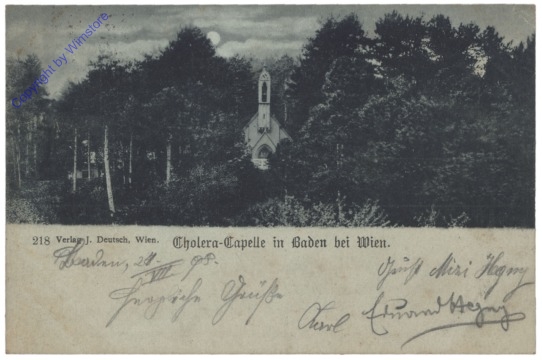 Copyright by Winstore
218 Verlag J. Deutsch, Wien. Cholera-Capelle in Baden bei Wien.
Baden, 21. VIII 98.
Herzliche Grüße
Mizi
Karl Eduard